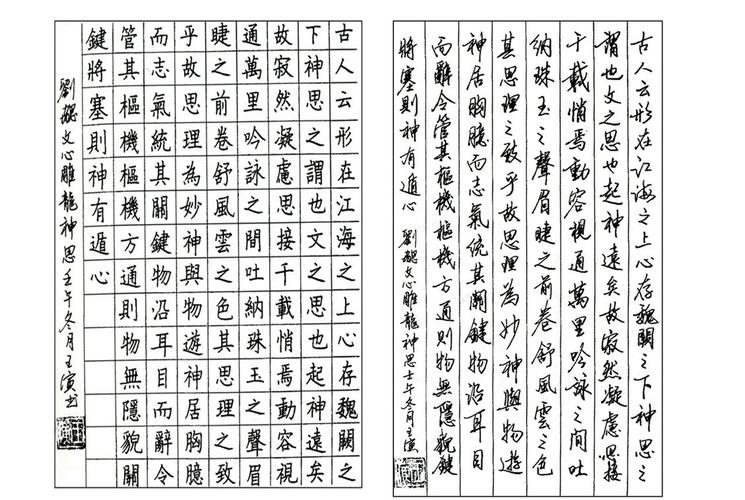 古人云形在江海之上心存魏闕之下神思之
謂也文之思也起神遠矣故寂然凝慮思接
千載悄焉動容視通萬里吟詠之間吐
納珠玉之聲眉睫之前卷舒風雲之色
其思理之致乎故思理為妙神與物遊
神居胸臆而志氣統其關鍵物沿耳目
而辭令管其樞機樞機方通則物無隱貌鍵
將塞則神有遁心 劉勰文心雕龍神思壬午冬月王
古人云形在江海之上心存魏闕之
下神思之謂也文之思也起神遠矣
故寂然凝慮思接千載悄焉動容視
通萬里吟詠之間吐納珠玉之聲眉
睫之前卷舒風雲之色其思理之致
乎故思理為妙神與物遊神居胸臆
而志氣統其關鍵物沿耳目而辭令
管其樞機樞機方通則物無隱貌關
鍵將塞則神有遁心
劉勰文心雕龍神思壬午冬月王